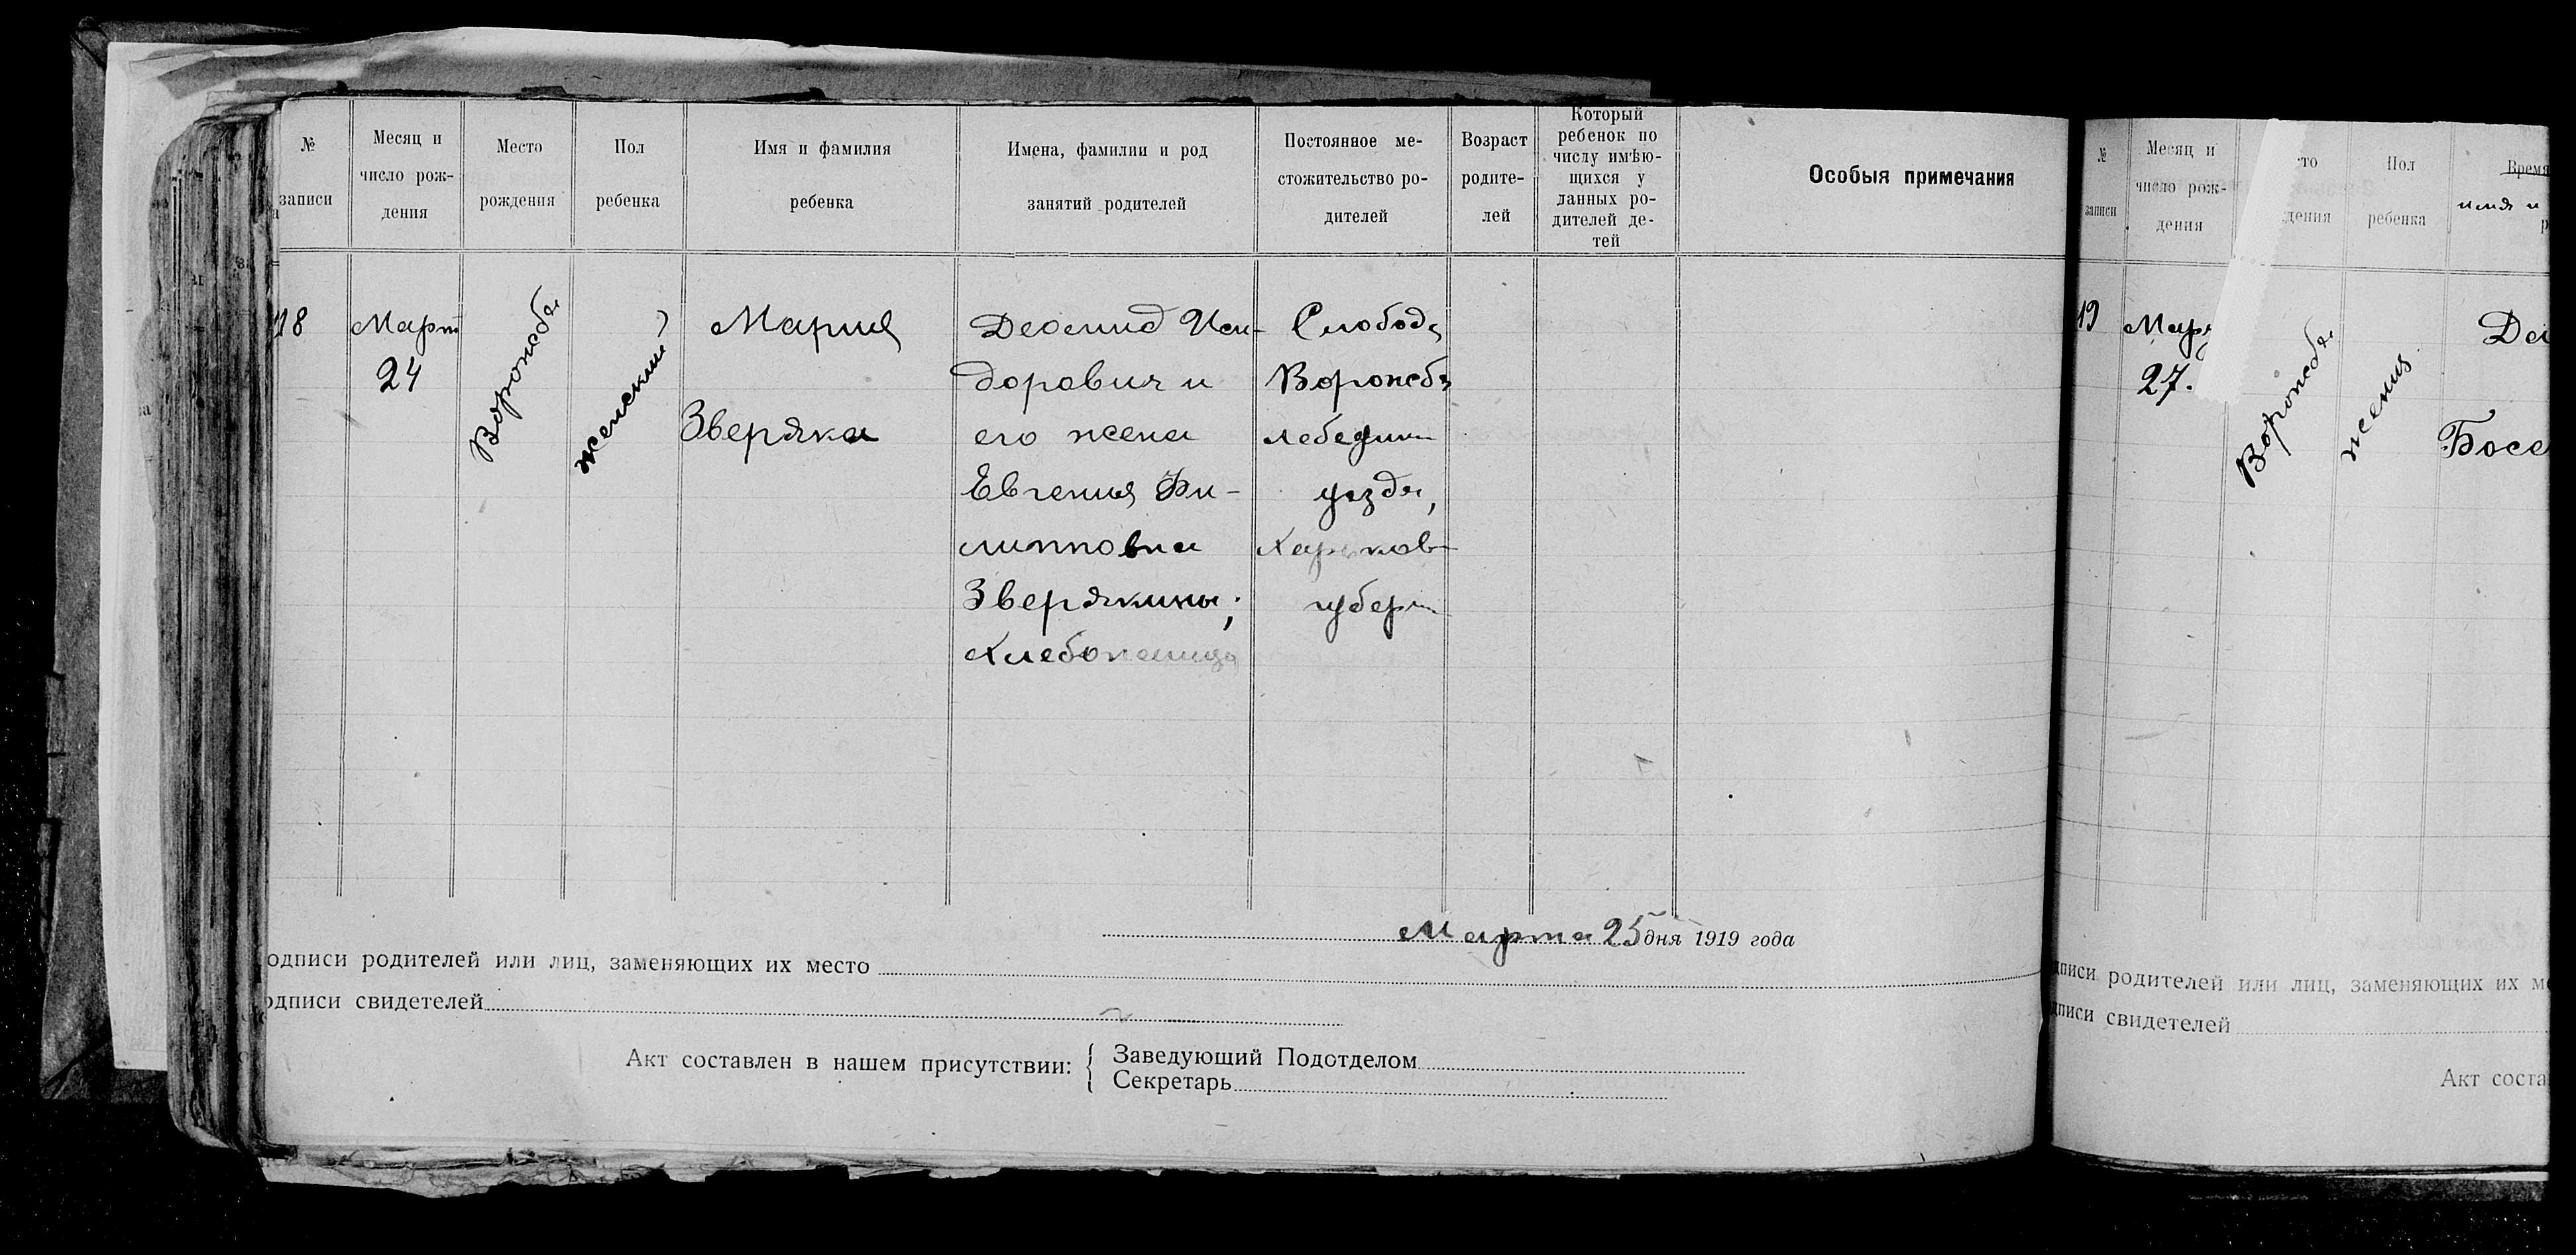 №
записи
Месяц и
число рож-
дения
Место
рождения
Пол
ребенка
Имя и фамилия
ребенка
Имена, фамилии и род
занятий родителей
Постоянное ме-
стожительство ро-
дителей
Возраст
родите-
лей
Который
ребенок по
числу имѣю-
щихся у
данных ро-
дителей де-
тей
Особыя примечания
18
Март
24
Ворожба
женский
Мария
Зверяка
Деомид Иси-
дорович и
его жена
Евгения Фи-
липповна
Зверякины;
Слобода
Ворожба
Лебедин
уезда,
Харьков
губерн
Марта 25 дня 1919 года
одписи родителей или лиц, заменяющих их место
одписи свидетелей
Акт составлен в нашем присутствии:
Заведующий Подотделом
Секретарь
№
записи
Месяц и
число рож-
дения
то
дения
Пол
ребенка
Время
имя и
р
19
Мар
27.
Ворожба
жения
Босе
дписи родителей или лиц, заменяющих их м
дписи свидетелей
Акт соста